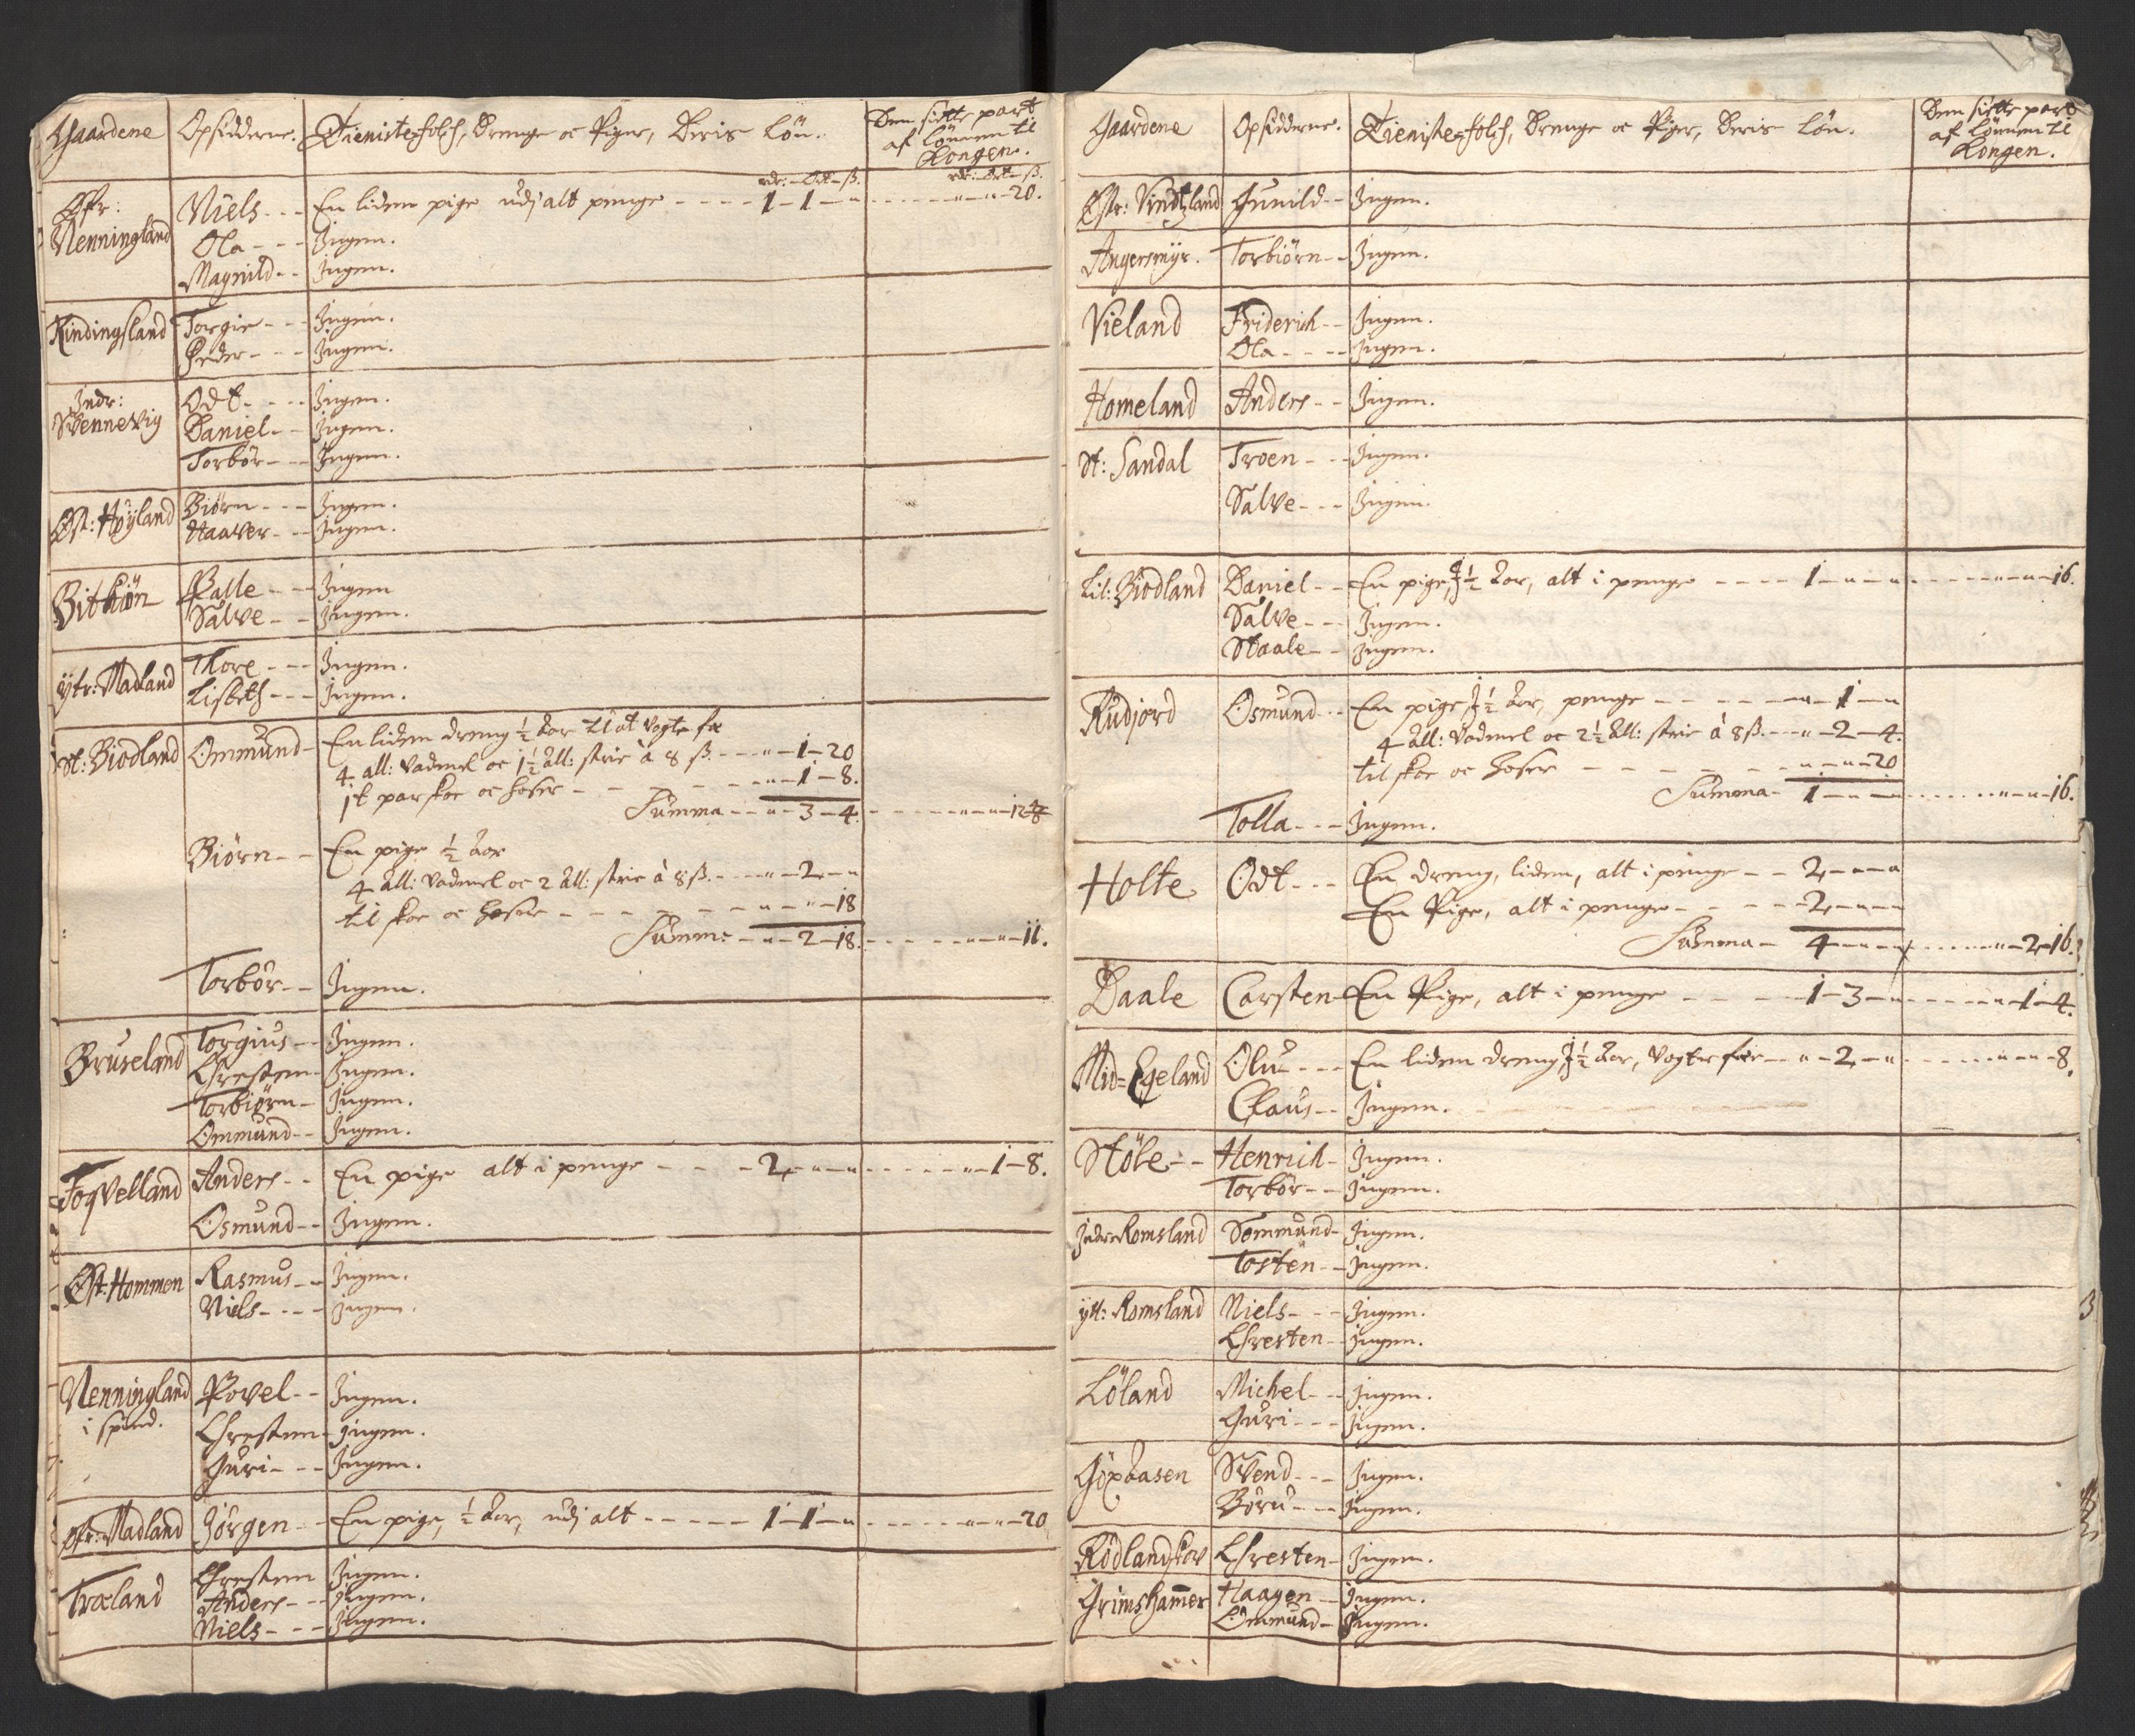 Gaardene Opsidderne. Tieniste-folch, Drenge oc Piger, Deris Lön. Den siette part
af lönnen til
Kongen.
rdr: — Ort — ß. rdr: Ort — ß.
Öfr: Nenningland Niels - - - En liden pige udj alt penge - - - - 1 - 1 - „ - - - - - „ - „ - 20.
Ola - - - Ingen.
Magnild - - Ingen.
Rindingsland Torgie - - - Ingen.
Peder - - - Ingen.
Indr:
Svennevig Odt - - - Ingen.
Daniel - - Ingen.
Torbör - - Ingen.
Öst: Höyland Biörn - - - Ingen.
Haaver - - Ingen.
Palle - - Ingen
Salve - - Ingen.
ytr: Madland Thore - - - Ingen.
Lisbeth - - - Ingen.
St: Biodland Ommund - En liden dreng ½ Aar til at vogte fæ
4 all: vadmel oc 1½ all: strie à 8 ß. - - - „ - 1 - 20
it par skoe oc hoser - - - - - „ - 1 - 8.
Summa - - „ - 3 - 4. - - - - - „ - „ - 12
Biörn - - En pige ½ Aar
4 All: vadmel oc 2 All: strie à 8 ß. - - - „ - 2 - „
til skoe oc hoser - - - - - - „ - „ - 18
Summa - „ - 2 - 18. - - - - - „ - „ - 11.
Torbör - - Ingen.
Bruseland Torgius - - Ingen.
Chresten - Ingen.
Torbiörn - Ingen.
Ommund - - Ingen.
Foqvelland Anders - - En pige alt i penge - - - - 2 - „ - „ - - - - - „ - 1 - 8.
Osmund - - Ingen.
Öst: Hommen Rasmus - - Ingen.
Niels - - - - Ingen.
Nenningland
i spind. Povel - - Ingen.
Chresten - Ingen.
Guri - - - Ingen.
öfr: Madland Jörgen - - En pige, ½ Aar, udj alt - - - - - 1 - 1 - „ - - - - - „ - „ - 20
Træland Chresten Ingen.
Anders - - Ingen.
Niels - - - Ingen.
Gaardene Opsidderne. Tieniste-folch, Drenge oc Piger, Deris Lön. Den siette part
af lönnen til
Kongen.
Östr: Vindtzland Gunild - - Ingen.
Angersmyr. Torbiörn - - Ingen.
Vieland Friderich - - Ingen.
Ola - - - - Ingen.
Homeland Anders - - Ingen.
St: Sandal Troen - - - Ingen.
Salve - - - Ingen.
Lil: Biodland Daniel - - En pige, ½ Aar, alt i penge - - - - 1 - „ - „ - - - - - „ - „ - 16.
Salve - - - Ingen.
Staale - - Ingen.
Rudjord Osmund - - En pige ½ Aar, penge - - - - - „ - 1 - „
4 All: vadmel oc 2½ All: strie à 8 ß. - - - „ - 2 - 4.
til skoe oc hoser - - - - - - „ - „ - 20
Summa - 1 - „ - „ - - - - - „ - „ - 16.
Tolla - - - Ingen.
Holte Odt - - - En dreng, liden, alt i penge - - 2 - „ - „
En Pige, alt i penge - - - - - 2 - „ - „
Summa - 4 - „ - „ - - - - - „ - 2 - 16.
Daale Carsten - En Pige, alt i penge - - - - 1 - 3 - „ - - - - - „ - 1 - 4.
Mid-Egeland Oluf - - - En liden dreng ½ Aar, vogter fæ - - „ - 2 - „ - - - - - „ - „ - 8.
Claus - - Ingen.
Stöle - - Henrich - Ingen.
Torbör - - Ingen.
Indre Romsland Sommund - Ingen.
Tosten - - Ingen.
ytt: Romsland Niels - - - Ingen.
Chresten - Ingen.
Löland Michel - - Ingen.
Guri - - - Ingen.
Svend - - - Ingen.
Böru - - - Ingen.
Rödlandskov Chresten - Ingen.
Grimshammer Haagen - Ingen.
Ommund - Ingen.